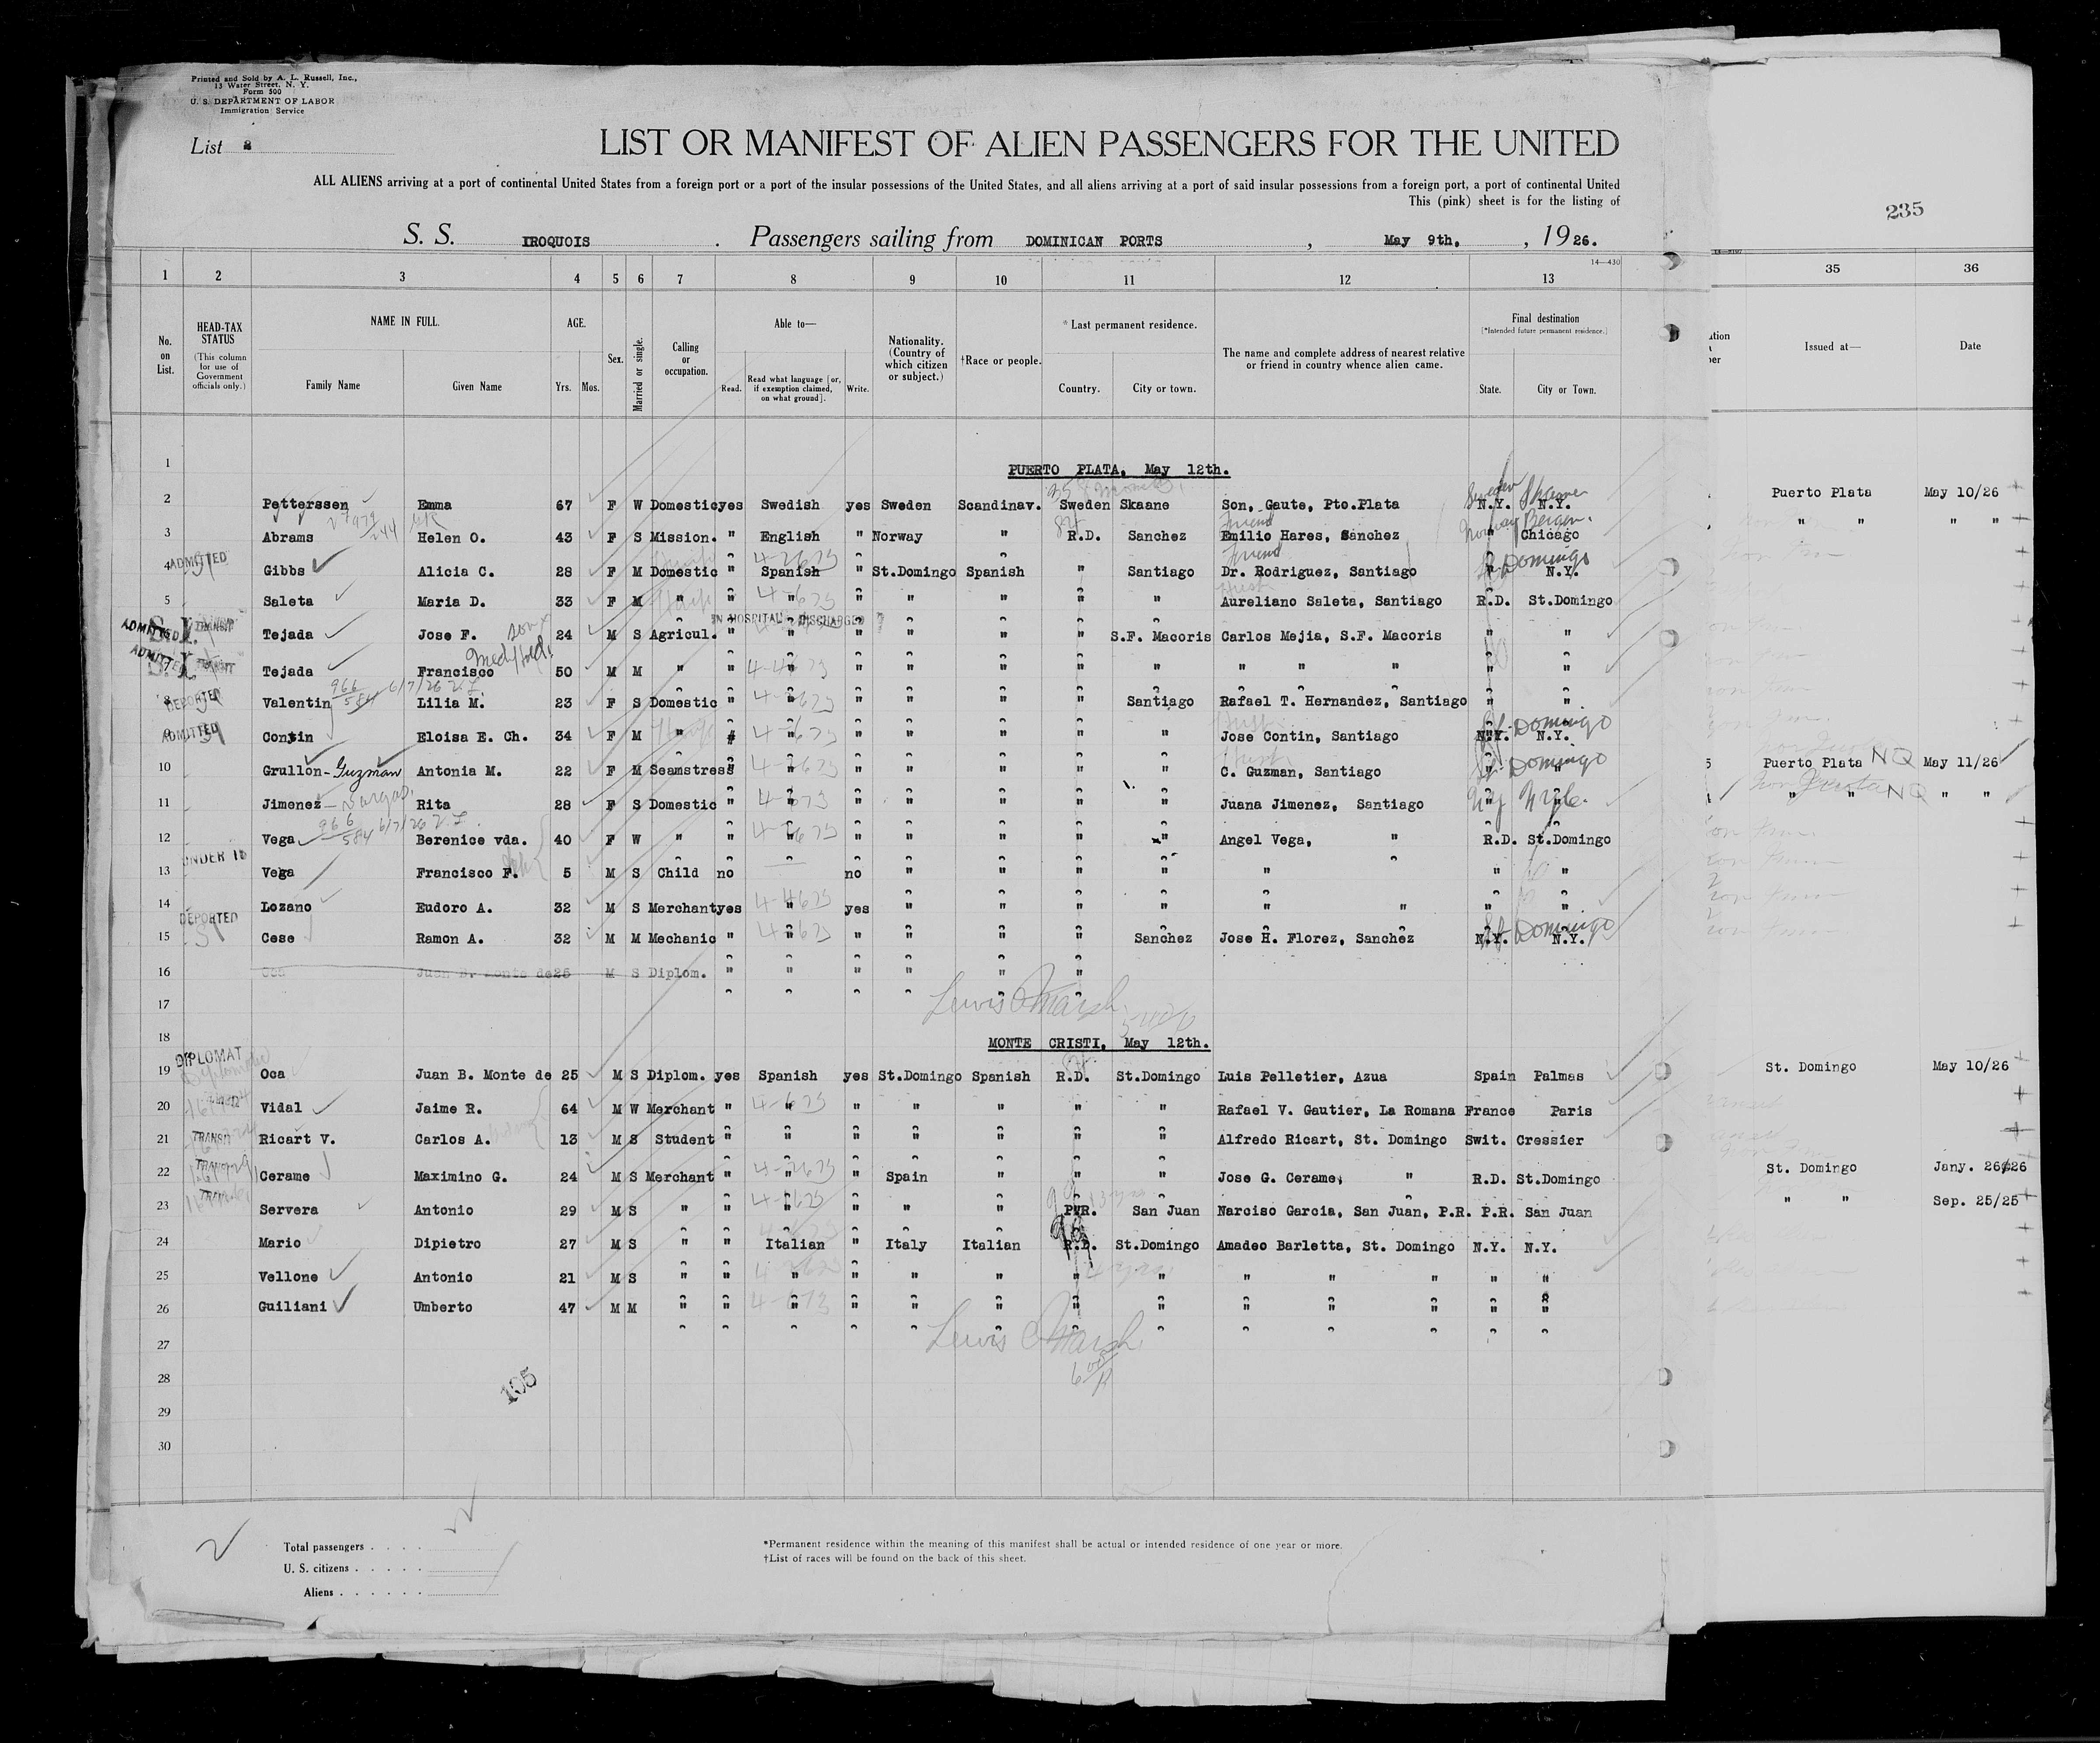 Printed and Sold by A. L. Russell, Inc.,
13 Water Street, N. Y.
Form 500
U. S. DEPARTMENT OF LABOR
Immigration Service
List 2
LIST OR MANIFEST OF ALIEN PASSENGERS FOR THE UNITED
ALL ALIENS arriving at a port of continental United States from a foreign port or a port of the insular possessions of the United States, and all aliens arriving at a port of said insular possessions from a foreign port, a port of continental United
This (pink) sheet is for the listing of
235
S. S. IROQUOIS . Passengers sailing from DOMINICAN PORTS , May 9th, , 1926.
14—430
1 2 3 4 5 6 7 8 9 10 11 12 13 35 36
No. on List. HEAD-TAX STATUS (This column for use of Government officials only.) NAME IN FULL. Family Name Given Name AGE. Yrs. Mos. Sex. Married or single. Calling or occupation. Able to— Read. Read what language [or, if exemption claimed, on what ground]. Write. Nationality. (Country of which citizen or subject.) †Race or people. *Last permanent residence. Country. City or town. The name and complete address of nearest relative or friend in country whence alien came. Final destination [*Intended future permanent residence.] State. City or Town. Issued at— Date
1 PUERTO PLATA, May 12th.
2 Petterssen Emma 67 F W Domestic yes Swedish yes Sweden Scandinav. Sweden Skaane Son, Gaute, Pto.Plata Sweden N.Y. N.Y. Puerto Plata May 10/26
3 Abrams Helen O. 43 F S Mission. " English " Norway " R.D. Sanchez Friend Emilio Hares, Sanchez Norway " Bergen. Chicago " " " "
4 ADMITTED Gibbs Alicia C. 28 F M Domestic " Spanish " St.Domingo Spanish " Santiago Friend Dr. Rodriguez, Santiago " St Domingo N.Y.
5 Saleta Maria D. 33 F M " " " " " " " " Aureliano Saleta, Santiago R.D. St.Domingo
IN HOSPITAL DISCHARGED
ADMITTED S.I. TRANSIT Tejada Jose F. son 24 M S Agricul. " " " " " " S.F. Macoris Carlos Mejia, S.F. Macoris " "
ADMITTED S.I. TRANSIT Tejada Francisco Med Held 50 M M " " " " " " " " " " " " "
8 DEPORTED Valentin 966/584 6/7/26 V.L. Lilia M. 23 F S Domestic " " " " " " Santiago Rafael T. Hernandez, Santiago " "
9 ADMITTED Contin Eloisa E. Ch. 34 F M " " " " " " " " Jose Contin, Santiago N.Y. St Domingo N.Y.
10 Grullon-Guzman Antonia M. 22 F M Seamstress " " " " " " " C. Guzman, Santiago " St Domingo " Puerto Plata NQ May 11/26
11 Jimenez - Vargas. Rita 28 F S Domestic " " " " " " " Juana Jimenez, Santiago " " " " NQ " "
12 Vega 966/584 6/7/26 V.L. Berenice vda. 40 F W " " " " " " " " Angel Vega, " R.D. St.Domingo
UNDER 16
13 Vega Francisco F. 5 M S Child no no " " " " " " "
14 Lozano Eudoro A. 32 M S Merchant yes " yes " " " " " " " "
DEPORTED
15 Cese Ramon A. 32 M M Mechanic " " " " " " Sanchez Jose H. Florez, Sanchez N.Y. St Domingo N.Y.
16 Oca Juan B. Monte de 25 M S Diplom. " " " " " "
17 Lewis C Marsh
18 MONTE CRISTI, May 12th.
DIPLOMAT
19 Oca Juan B. Monte de 25 M S Diplom. yes Spanish yes St.Domingo Spanish R.D. St.Domingo Luis Pelletier, Azua Spain Palmas St. Domingo May 10/26
20 Vidal Jaime R. 64 M W Merchant " " " " " " " Rafael V. Gautier, La Romana France Paris
21 TRANSIT Ricart V. Carlos A. 13 M S Student " " " " " " " Alfredo Ricart, St. Domingo Swit. Cressier
22 TRANSIT Cerame Maximino G. 24 M S Merchant " " " Spain " " " Jose G. Cerame, " R.D. St.Domingo St. Domingo Jany. 26/26
23 Servera Antonio 29 M S " " " " " " P.R. San Juan Narciso Garcia, San Juan, P.R. P.R. San Juan " " Sep. 25/25
24 Mario Dipietro 27 M S " " Italian " Italy Italian R.D. St.Domingo Amadeo Barletta, St. Domingo N.Y. N.Y.
25 Vellone Antonio 21 M S " " " " " " " " " " " " "
26 Guiliani Umberto 47 M M " " " " " " " " " " " " "
27 Lewis C Marsh
28
29
30
105
Total passengers . . . .
U. S. citizens . . . . .
Aliens . . . . . .
*Permanent residence within the meaning of this manifest shall be actual or intended residence of one year or more.
†List of races will be found on the back of this sheet.